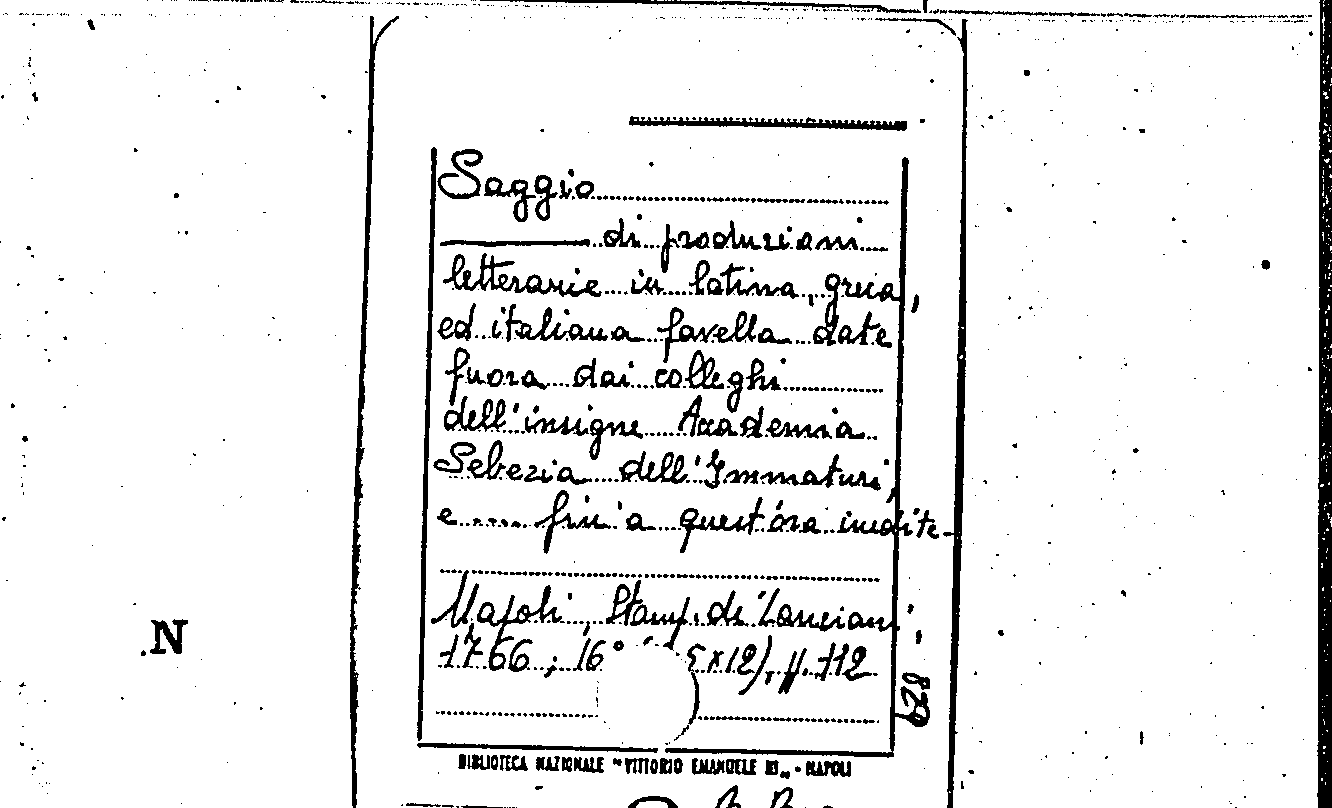 Saggio
di produzioni
letterarie in latina, greca,
ed italiana favella date
fuora dai colleghi
dell'insigne Accademia
Sebezia dell'Immaturi,
e .... fin'a quest'ora inedite.
Napoli, Stamp. di Lanciani,
N
1766; 16° 5x12), pp. 112
829
BIBLIOTECA NAZIONALE "VITTORIO EMANUELE III" - NAPOLI